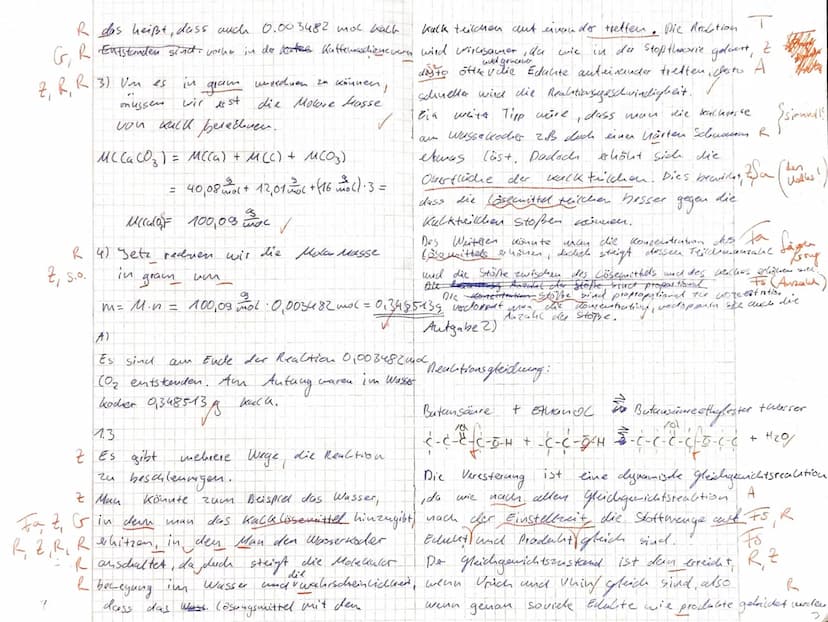 R das heißt, dass auch 0.003482 mol Kalk
G, R Entstanden sind. vorher in der
Z, R, R 3) Um es in gram umrechnen zu können,
müssen wir erst die Molare Masse
von Kalk berechnen.
M(CaCO3) = M(Ca) + M(C) + M(O3)
= 40,08 g/mol + 12,01 g/mol + (16 g/mol) · 3 =
M(CaCO3) = 100,09 g/mol
R 4) Jetz rechnen wir die Molar Masse
Z, s.o. in gram um
m = M·n = 100,09 g/mol · 0,003482 mol = 0,348513g
A)
Es sind am Ende der Reaktion 0,003482 mol
CO2 entstanden. Am Anfang waren im Wasser
kocher 0,348513 g Kalk.
1.3
Z Es gibt mehrere Wege, die Reaktion
zu beschleunigen.
Z Man könnte zum Beispiel das Wasser,
Fa, Z, G in dem man das Kalklösemittel hinzugibt,
R, Z, R, R erhitzen, in den Man den Wasserkocher
R anschaltet, da duch steigt die Molekular
R bewegung im Wasser und die wahrscheinlichkeit,
dass das Lösungsmittel mit den
Kalkteilchen auf einander treffen. Die Reaktion T
wird wirksamer, da wie in der Stoßtheorie gelernt, Z
desto öfter die Edukte aufeinander treffen, desto A
schneller wird die Reaktionsgeschwindigkeit.
Ein weite Tipp wäre, dass man die Kalkreste
am Wasserkocher z.B. duch einen Härten Schwamm R
etwas löst. Dadoch erhöht sich die
Oberfläche der Kalkteilchen. Dies bewirkt, Z, Sa (des
dass die Lösemittel teilchen besser gegen die
Kalkteilchen Stoßen können.
Des Weiteren könnte man die Konzentration des Fa
Lösemittels erhöhen, dabei steigt dessen Teilchenanzahl
und die Stöße zwischen des Lösemittels und des Kalkes erhöhen sich
Anzahl der Stöße sind proportional Fs (Anzahl)
Die Stöße sind proportional zur Konzentration
verdoppelt man die Konzentration, verdoppeln sie auch die
Anzahl der Stöße.
Aufgabe 2)
Reaktionsgleichung:
Butansäure + Ethanol ⇌ Butansäureethylester + Wasser
-C-C-C-C-O-H + -C-C-O-H ⇌ -C-C-C-C-O-C-C + H2O
Die Veresterung ist eine dynamische Gleichgewichtsreaktion
, da wie nach allen Gleichgewichtsreaktion A
nach der Einstellzeit, die Stoffmenge auf Fs, R
Edukt und Produkt gleich sind. Fs
Der Gleichgewichtszustand ist dan erreicht, R, Z
wenn Vrück und Vhin gleich sind, also
R
wenn genau soviele Edukte wie produkte gebildet werden